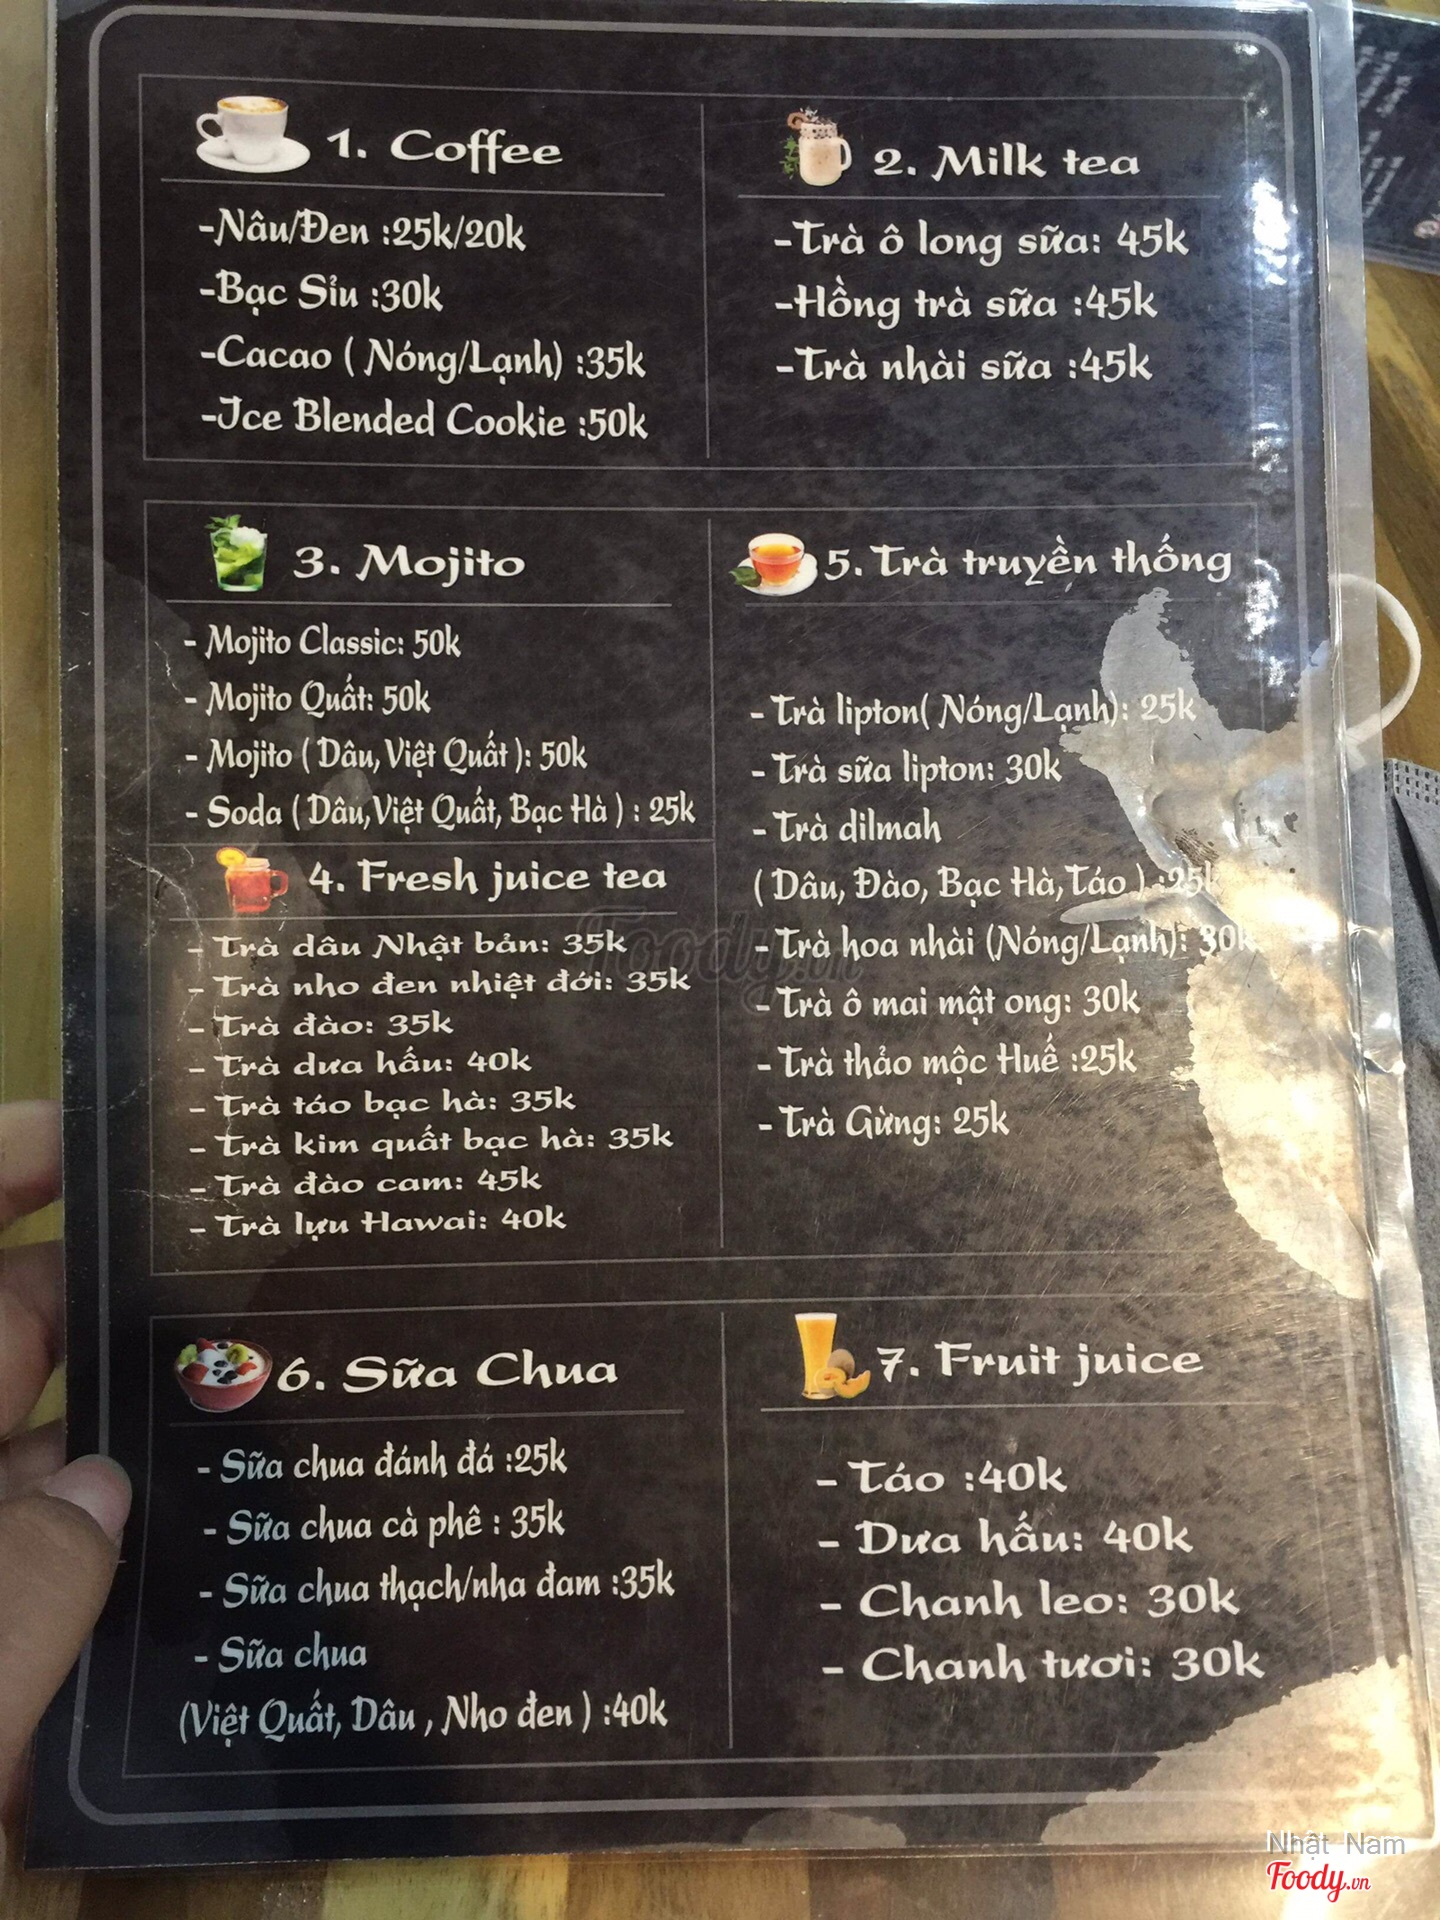 1. Coffee
-Nâu/Đen :25k/20k
-Bạc Sỉu :30k
-Cacao ( Nóng/Lạnh) :35k
-Ice Blended Cookie :50k
2. Milk tea
-Trà ô long sữa: 45k
-Hồng trà sữa :45k
-Trà nhài sữa :45k
3. Mojito
- Mojito Classic: 50k
- Mojito Quất: 50k
- Mojito ( Dâu,Việt Quất ): 50k
- Soda ( Dâu,Việt Quất, Bạc Hà ) : 25k
4. Fresh juice tea
- Trà dâu Nhật bản: 35k
- Trà nho đen nhiệt đới: 35k
- Trà đào: 35k
- Trà dưa hấu: 40k
- Trà táo bạc hà: 35k
- Trà kim quất bạc hà: 35k
- Trà đào cam: 45k
- Trà lựu Hawai: 40k
5. Trà truyền thống
- Trà lipton( Nóng/Lạnh): 25k
- Trà sữa lipton: 30k
- Trà dilmah
( Dâu, Đào, Bạc Hà,Táo ) :25k
- Trà hoa nhài (Nóng/Lạnh): 30k
- Trà ô mai mật ong: 30k
- Trà thảo mộc Huế :25k
- Trà Gừng: 25k
6. Sữa Chua
- Sữa chua đánh đá :25k
- Sữa chua cà phê : 35k
- Sữa chua thạch/nha đam :35k
- Sữa chua
(Việt Quất, Dâu , Nho đen ) :40k
7. Fruit juice
- Táo :40k
- Dưa hấu: 40k
- Chanh leo: 30k
- Chanh tươi: 30k
Foody.vn
Nhật Nam
Foody.vn